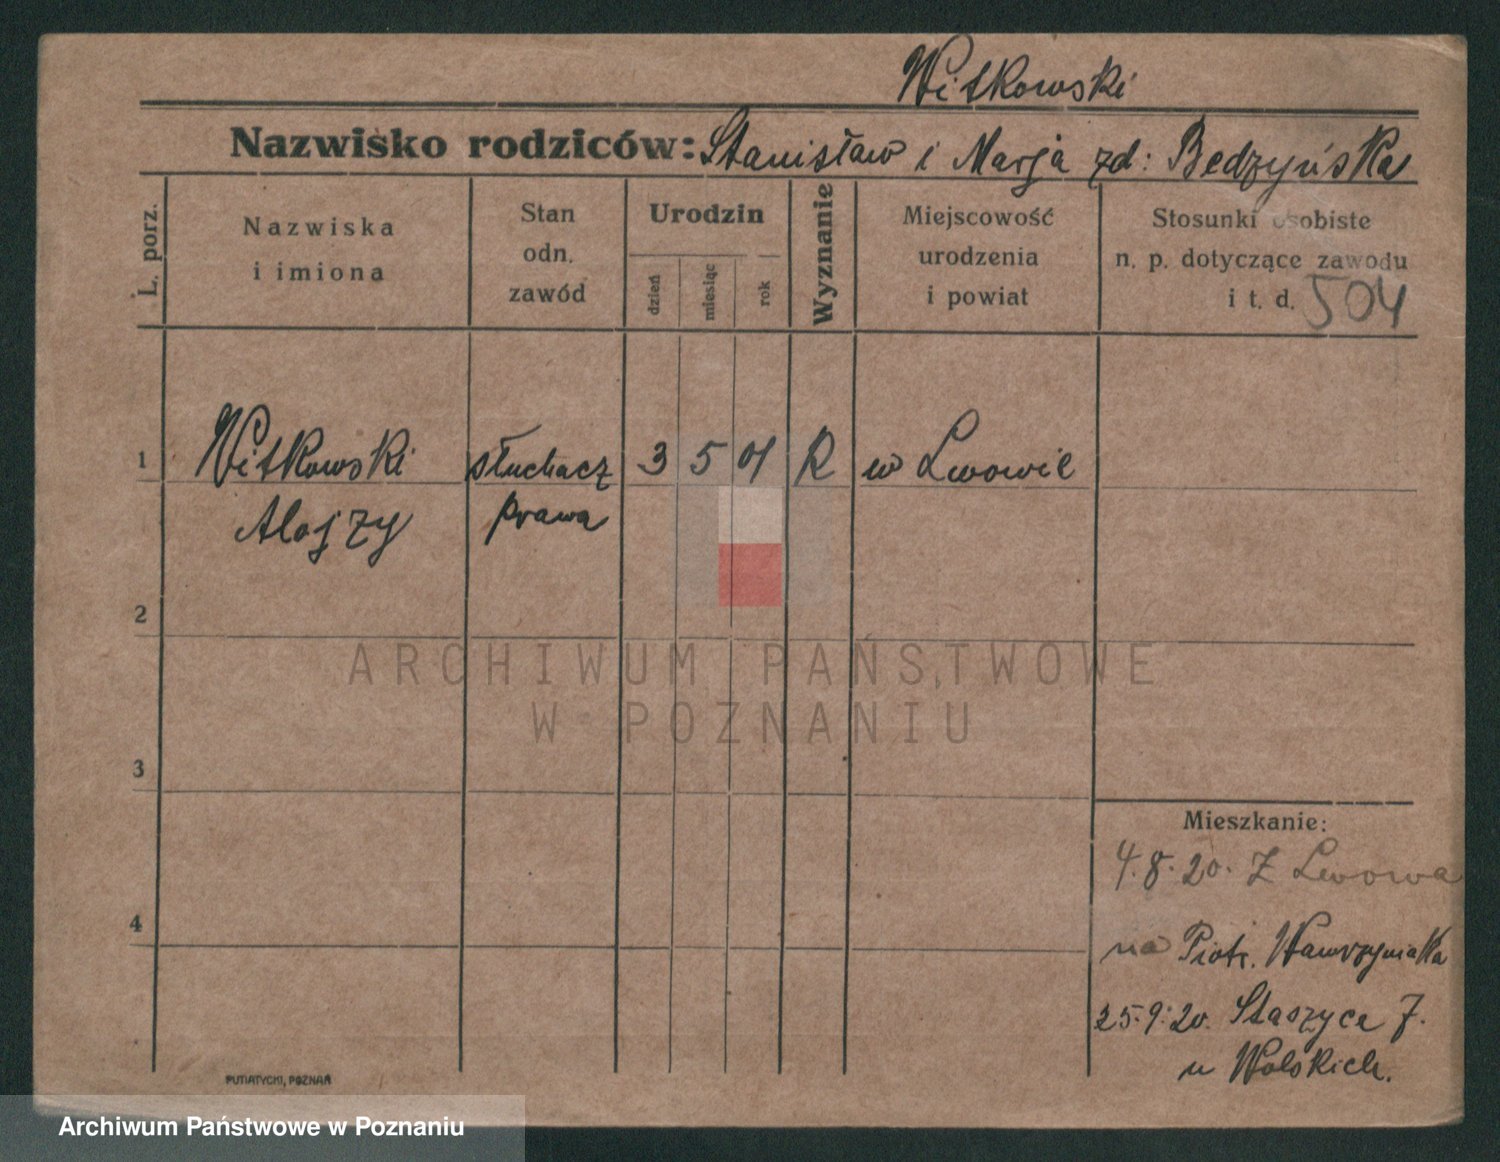 Witkowski
Nazwisko rodziców: Stanisław i Marja zd: Bedzyńska
L. porz.
Nazwiska
i imiona
Stan
odn.
zawód
Urodzin
dzień
miesiąc
rok
Wyznanie
Miejscowość
urodzenia
i powiat
Stosunki osobiste
n. p. dotyczące zawodu
i t. d. 504
1 Witkowski słuchacz 3 5 01 R w Lwowie
Alojzy prawa
2
ARCHIWUM PAŃSTWOWE
W POZNANIU
3
Mieszkanie:
4. 8. 20. Z Lwowa
4
na Piotr. Wawrzyniaka
25. 9. 20. Staszyca 7.
u Wolskich.
PUTIATYCKI, POZNAŃ
Archiwum Państwowe w Poznaniu